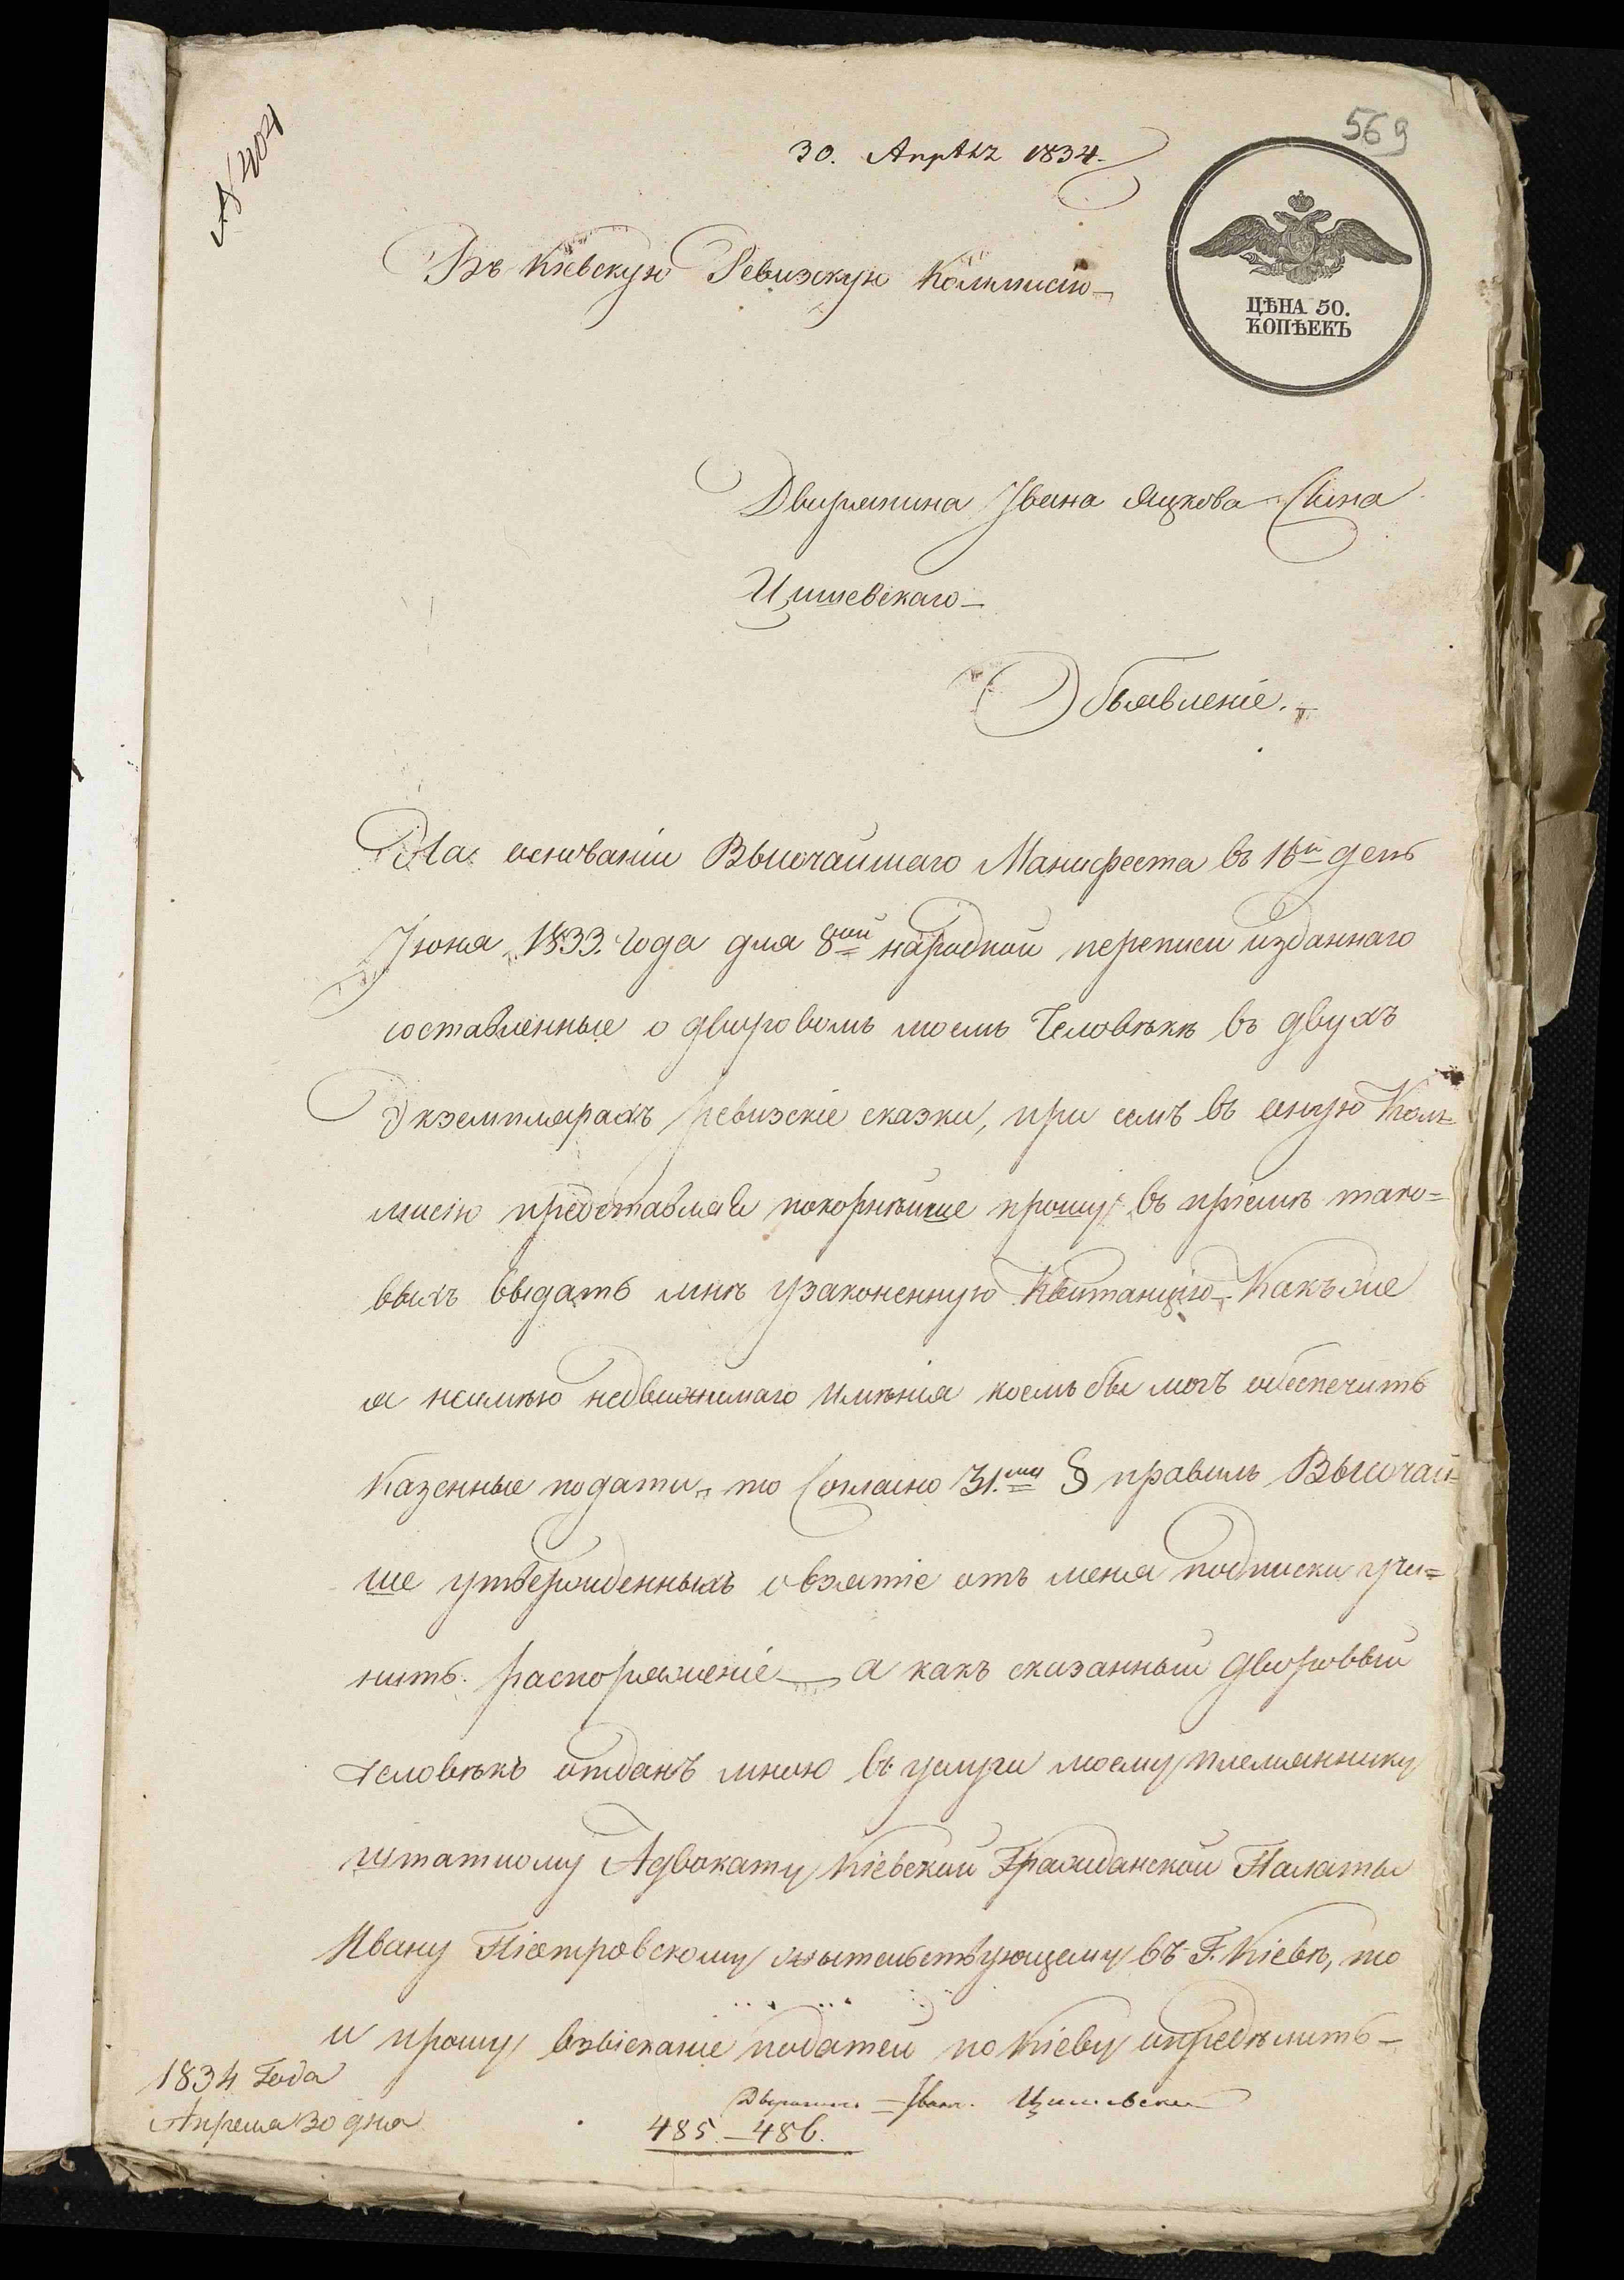 569
30. Апрѣля 1834.
Въ Кіевскую Ревизскую Коммисію
ЦѢНА 50.
КОПѢЕКЪ
Дворянина Ивана Яцкова Сына
Цишевскаго
Объявленіе.
На основаніи Высочайшаго Манифеста въ 16й день
Іюня 1833. года для 8ой народной переписи изданнаго
составленные о дворовомъ моемъ Человѣкѣ въ двухъ
Экземплярахъ ревизскіе сказки, при семъ въ оную Ком-
мисію представляя покорнѣйше прошу въ пріемѣ тако=
выхъ выдать мнѣ узаконенную Квитанцію. Какъ же
я неимѣю недвижимаго имѣнія коемъ бы могъ обеспечить
Казенные подати, то Согласно 31. § правилъ Высочай=
ше утвержденныхъ о взятіе отъ меня подписки учи=
нить распоряженіе а какъ сказанный дворовый
человѣкъ отданъ мною въ услуги моему племяннику
штатному Адвокату Кіевской Гражданской Палаты
Ивану Піотровскому жытельствующему въ Г. Кіевѣ, то
и прошу взысканіе податей по Кіеву определить
1834 Года
Апреля 30 дня
Дворянинъ Иван Цишевски
485.-486.